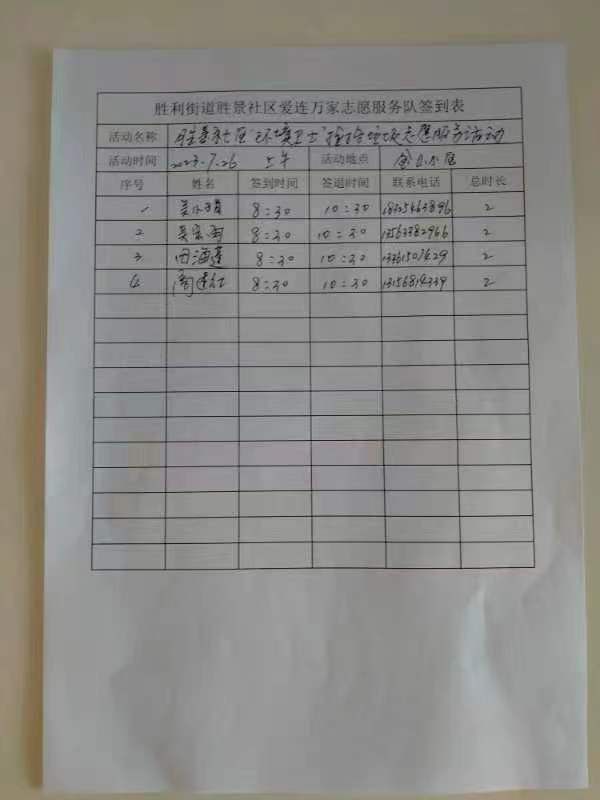 胜利街道胜景社区爱连万家志愿服务队签到表
活动名称 胜景社区"环境卫士"捡拾垃圾志愿服务活动
活动时间 2023.7.26 上午 活动地点
序号 姓名 签到时间 签退时间 联系电话 总时长
1 8:30 10:30 1825463896 2
2 8:30 10:30 13563382966 2
3 田海莲 8:30 10:30 2
4 8:30 10:30 13156814339 2